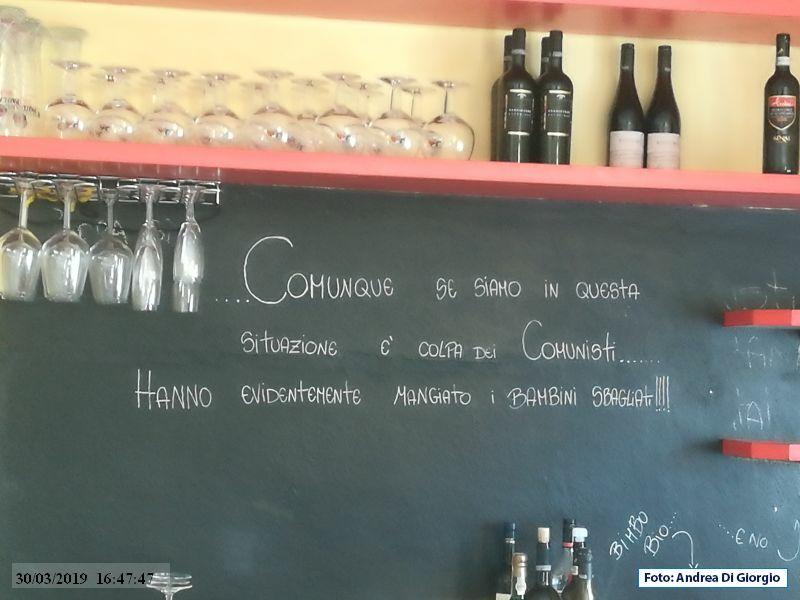 .....Comunque se siamo in questa
situazione e' colpa dei Comunisti.......
Hanno evidentemente mangiato i bambini sbagliati!!!!
BIMBO
BIO...
...E NO
30/03/2019 16:47:47
Foto: Andrea Di Giorgio